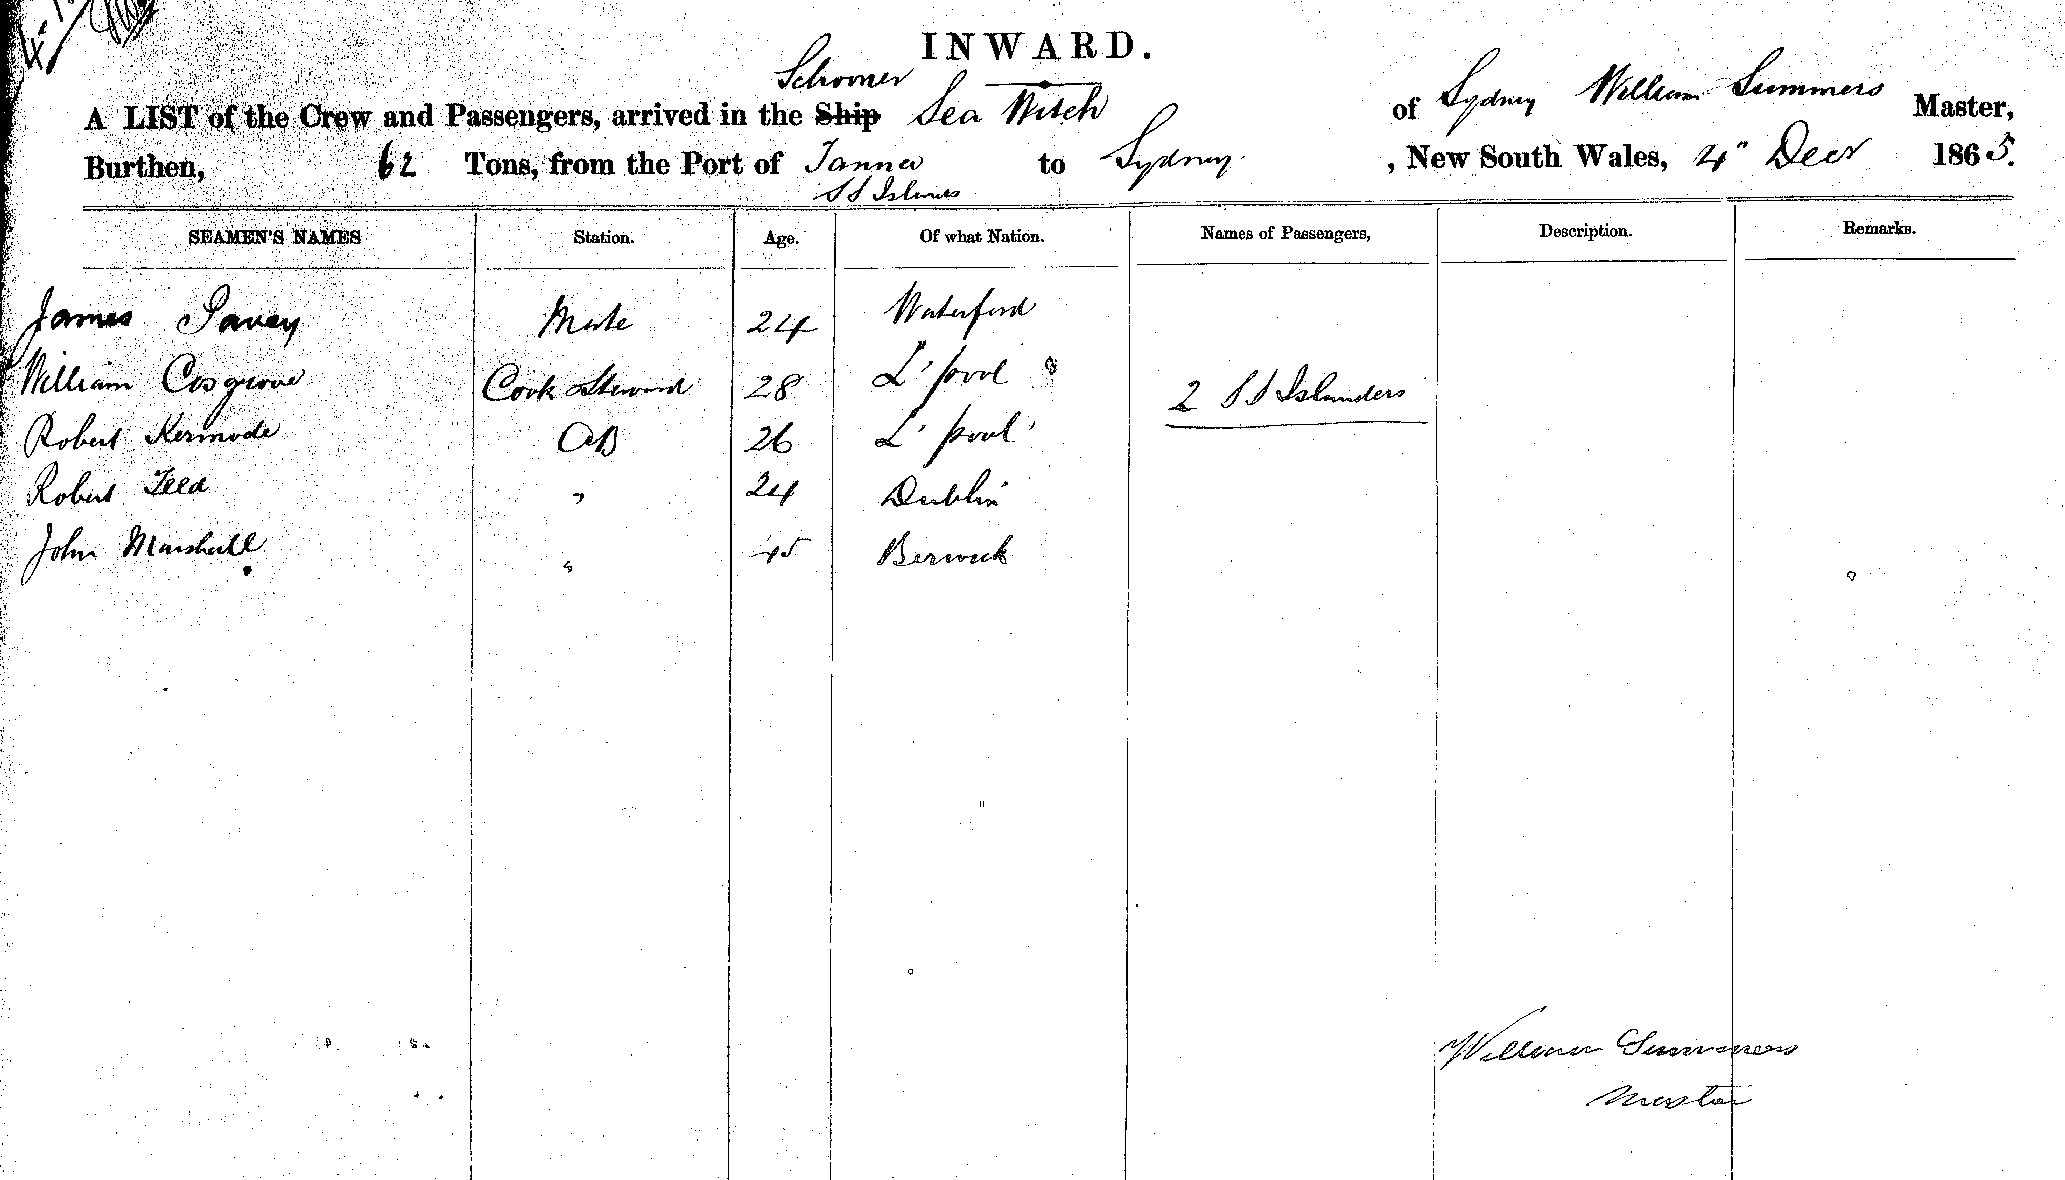 INWARD.
Schooner
A LIST of the Crew and Passengers, arrived in the Ship Sea Witch of Sydney William Summers Master,
Burthen, 62 Tons, from the Port of Tanna to Sydney, New South Wales, 4" Decr 1865.
S S Islands
SEAMEN'S NAMES Station. Age. Of what Nation. Names of Passengers, Description. Remarks.
James Mate 24 Waterford
William Cosgrove Cook Steward 28 L'pool
2 S S Islanders
Robert Kermode AB 26 L'pool
Robert " 24 Dublin
John Marshall " 45 Berwick
William Summers
Master